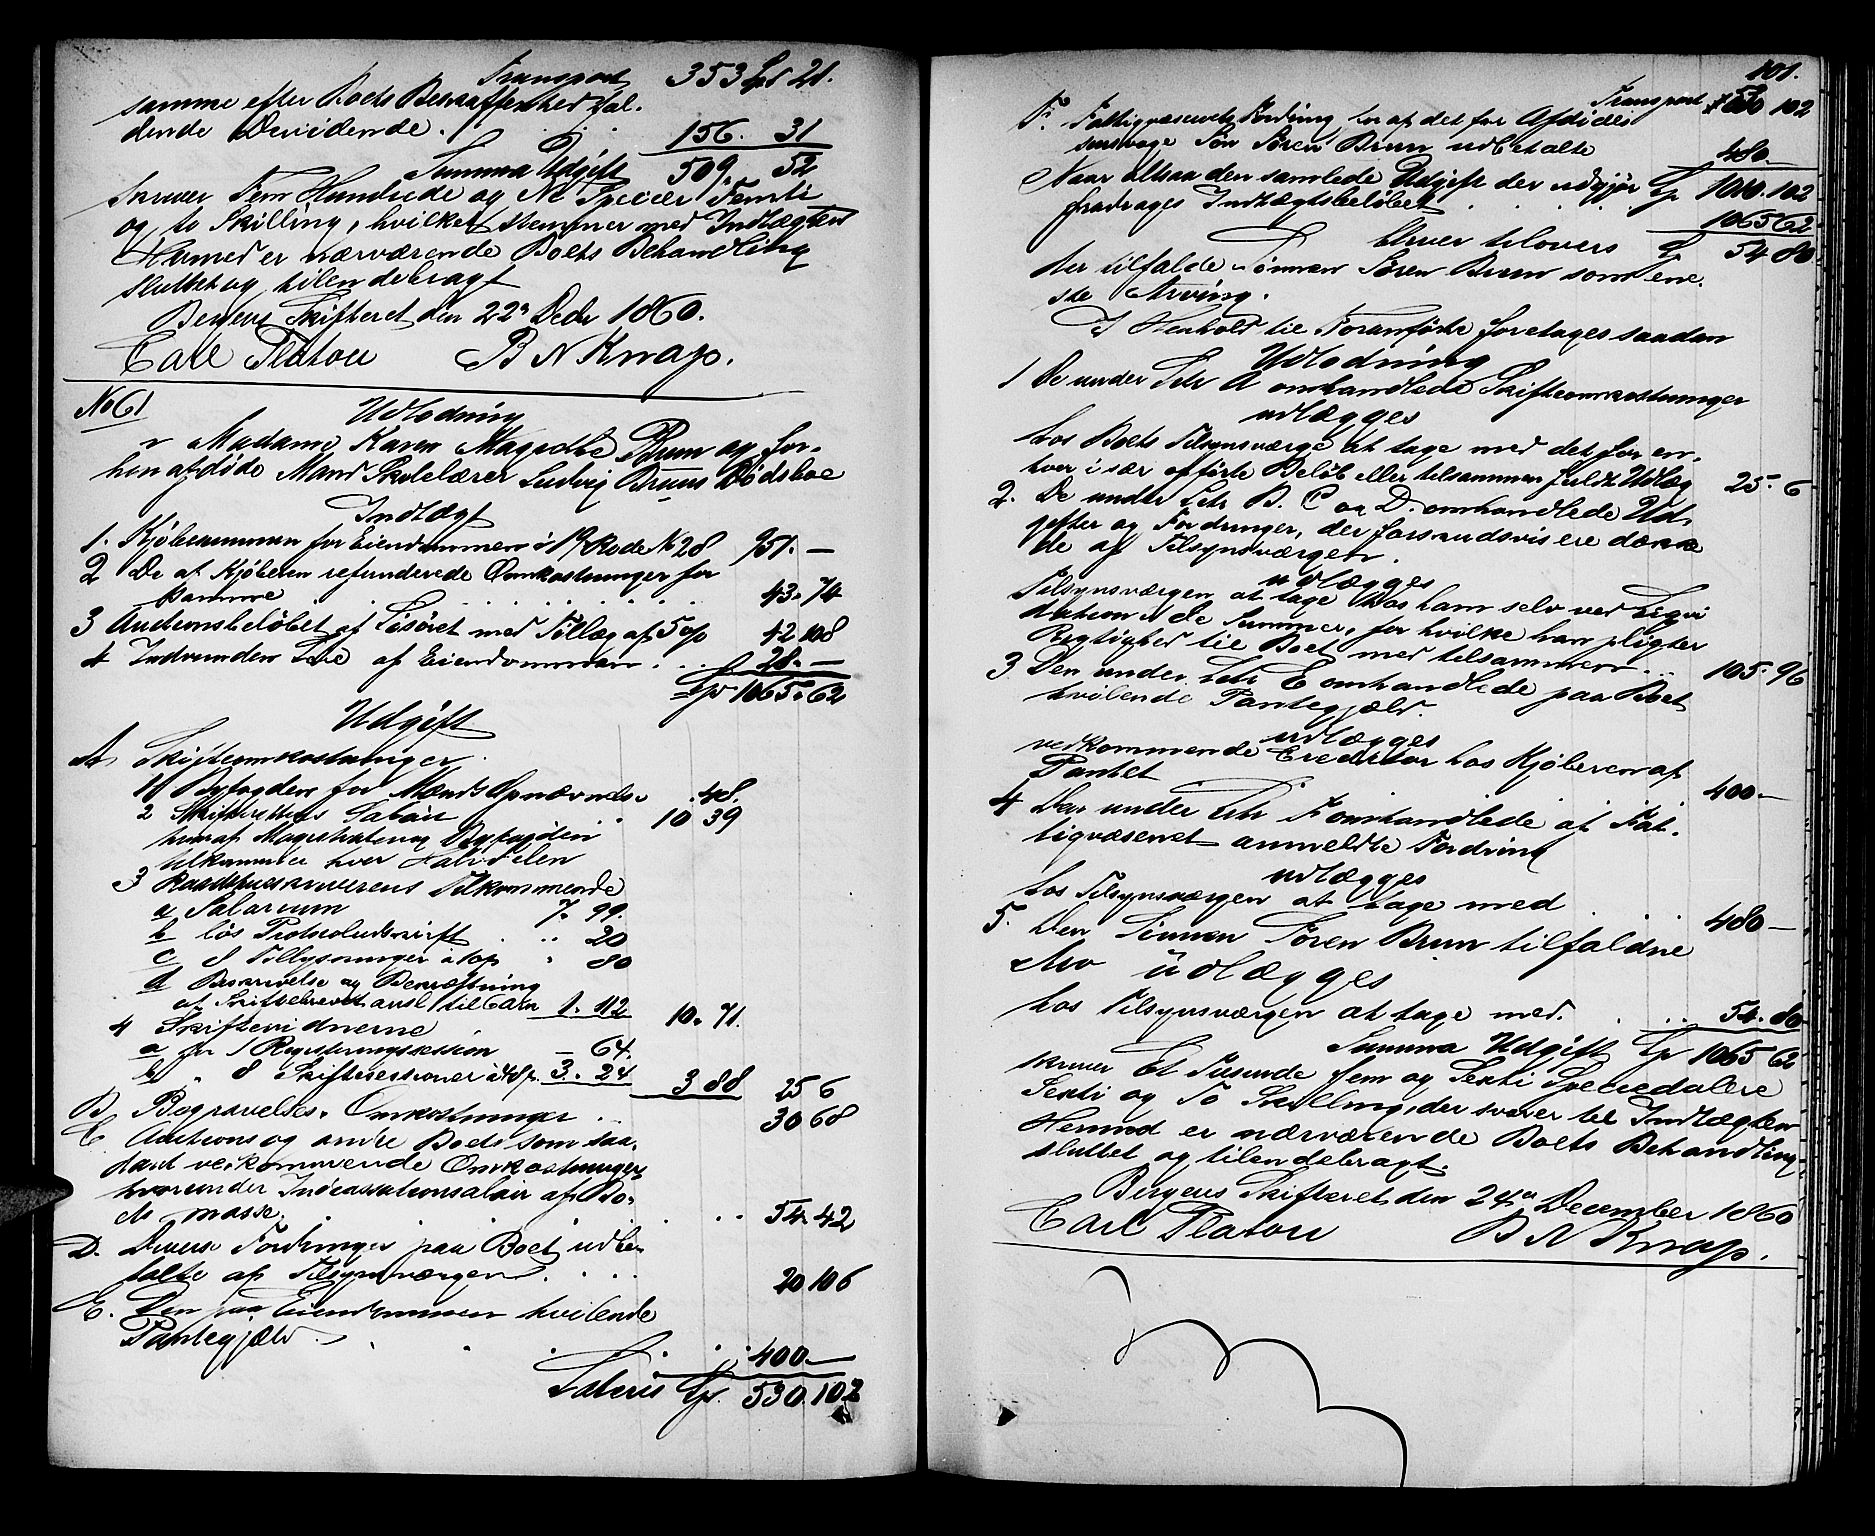 Transport 353 Spd 21.
samme efter Boets Beskaffenhed fal-
dende Dividende . . . 156. 31
Summa Udgift 509. 52
skriver Fem Hundrede og Ni Specier Femti
og to Skilling, hvilket stemmer med Indtægten
Hermed er nærværende Boets Behandling
sluttet og tilendebragt
Bergens Skifteret den 22de Decbr 1860.
Carl Platou B N Knap.
No 61
Udlodning
i Madame Karen Magrethe Brun og for-
hen afdøde Mand Skolelærer Ludvig Bruns Dødsboe
Indtægt
1. Kjøbesummen for Eiendommen i 19 Rode No 28 951. —
2 De af Kjøberen refunderede Omkostninger for
samme . . . 43. 74
3 Auctionsbeløbet af Løsøret med Tillæg af 5 op 42 108
4 Indvunden Leie af Eiendommen . . . 28. —
Spd 1065. 62
Udgift
A Skifteomkostninger
1 Byfogden for Mænds Opnævnelse . 48.
2 Skifterettens Salair 10 39
hvoraf Magistraten og Byfogden
tilkommer hver Halvdelen
3 Raadstueskriverens Tilkommende
a Salarium 7. 99.
b løs Protocoludskrift . . 20
c 8 Tillysninger à 10 p . 80
d Beskrivelse og Bekræftning
af Skiftebrevet ansl. til Carn 1. 112 10. 71.
4 Skiftevidnerne
a for 1 Registreringssession — 64.
b " 8 Skiftesessioner à 48 p. 3. 24 3 88 25 6
B. Begravelses Omkostninger . . 30 68
C Auctions og andre Boet som saa-
dant vedkommende Omkostninger
hvorunder Indcassationsalair af Bo-
ets masse . . . 54. 42
D. Diverse Fordringer paa Boet udbe-
talte af Tilsynsværgen . . . 20 106
E. Den paa Eiendommen hvilende
Pantegjæld . . . 400. —
Lateris Spd. 530. 102
101.
Transport 530 102
F. Fattigvæsenets Fordring for af det for Afdødes
sinsvage Søn Søren Brun udbetalte 480 —
Naar altsaa den samlede Udgift der udgjør Sp 1010. 102
fradrages Indtægtsbeløbet . . . 1065 62
bliver tilovers Sp 54 80
der tilfalde Sønnen Søren Brun som ene-
ste Arving.
I Henhold til Foranførte foretages saadan
Udlodning
1 De under Litr A omhandlede Skifteomkostninger
udlægges
hos Boets Tilsynsværge at tage med det for en-
hver især opførte Beløb eller tilsammen fuldt Udlæg 25. 6
2. De under Litr B. C og D. omhandlede Ud-
gifter og Fordringer, der forskudsvis ere dække-
de af Tilsynsværgen.
udlægges
Tilsynsværgen at tage hos ham selv ved Liqvi
dation i de Summer, for hvilke han pligter
Rigtighed til Boet med tilsammen . . . 105. 96
3 Den under Litr E omhandlede paa Boet
hvilende Pantegjæld.
udlægges
vedkommende Creditor hos Kjøberen af
Pantet 400 —
4 Den under Litr F omhandlede af Fat-
tigvæsenet anmeldte Fordring
udlægges
hos Tilsynsværgen at tage med . . . 480 —
5. Den Sønnen Søren Brun tilfaldne
Arv udlægges
hos Tilsynsværgen at tage med . . . 54. 80
Summa Udgift Sp 1065 62
skriver Et Tusende fem og Sexti Speciedalere
Sexti og To Skilling, der svarer til Indtægten
Hermed er nærværende Boets Behandling
sluttet og tilendebragt.
Bergens Skifteret den 24de December 1860
Carl Platou B N Knap.